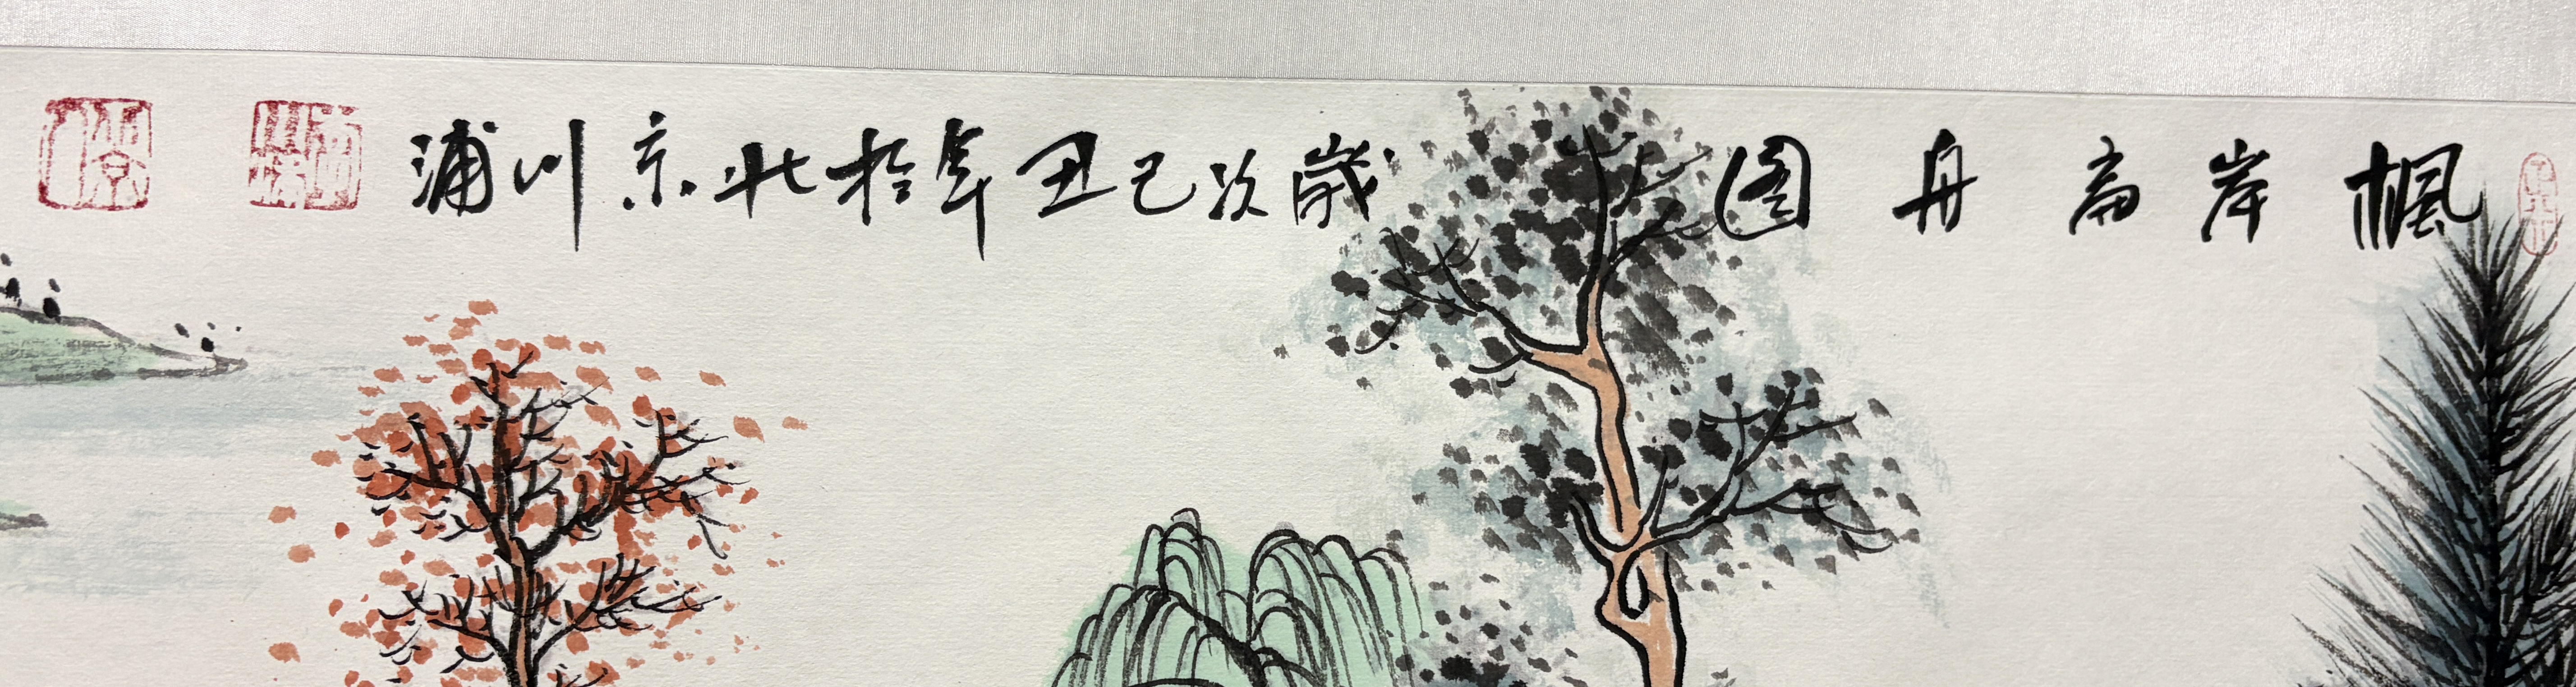 楓岸高舟图
歲次己丑年於北京川浦